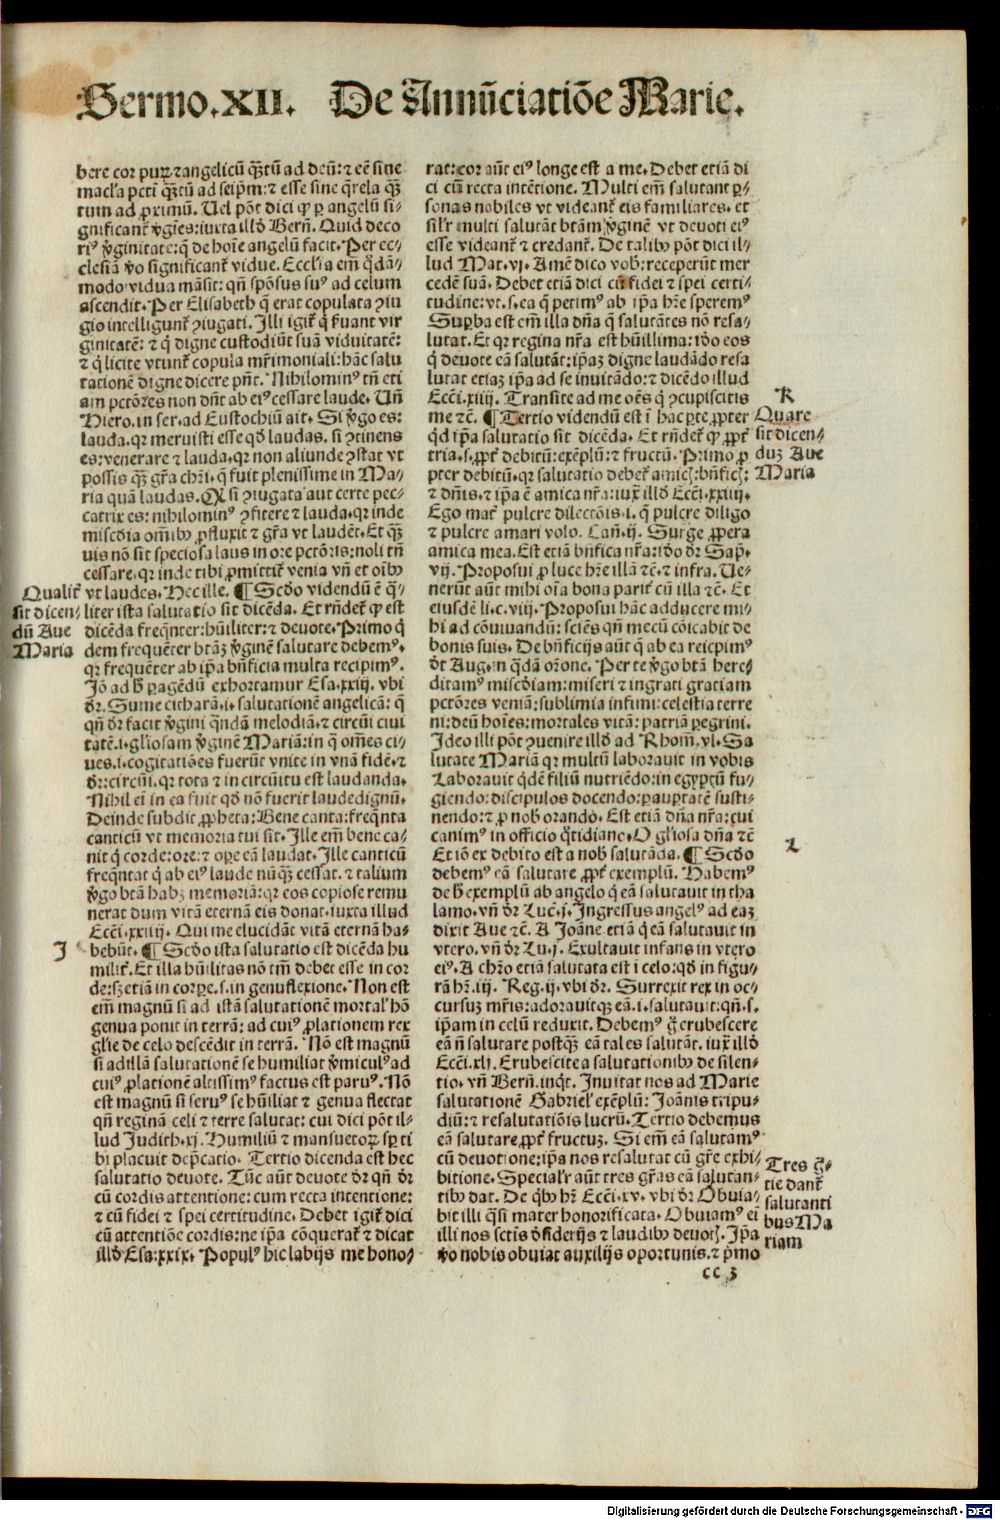 Sermo.XII. De Annũciatiõe Marie.
bere cor puꝝ ⁊ angelicũ q̃ꝫtũ ad deũ: ⁊ eẽ sine
macl'a pcti q̃ꝫtũ ad seip̃m: ⁊ esse sine q̃rela q̃ꝫ
tum ad ꝓximũ. Uel põt dici ꝙ ꝑ angelũ si-
gnificant᷑ ꝟgĩes: iuxta illđ Bern̄. Quid deco
ri⁹ ꝟginitate: q̃ de hoĩe angelũ facit. Per ec-
clesiã ꝟo significant᷑ vidue. Eccl'ia em̃ q̃dã-
modo vidua mãsit: qñ spõsus su⁹ ad celum
ascendit. Per Elisabeth q̃ erat copulata ꝯiu
gio intelligunt᷑ ꝯiugati. Illi igit᷑ q̇ ẜuant vir
ginitatẽ: ⁊ q̇ digne custodiũt suã viduitatẽ:
⁊ q̇ licite vtunt᷑ copula mr̃imoniali: hãc salu
tationẽ digne dicere pñt. Nihilomin⁹ tñ eti
am pctõres non dñt ab ei⁹ cessare laude. Uñ
Hiero. in ser. ad Eustochiũ ait. Si ꝟgo es:
lauda. qꝛ meruisti esse qđ laudas. si ꝯtinens
es: venerare ⁊ lauda. qꝛ non aliunde ꝯstat vt
possis q̃ꝫ gr̃a chr̃i. q̃ fuit plenissime in Ma-
ria quã laudas. Q si ꝯiugata aut certe pec-
catrix es: nihilomin⁹ ꝯfitere ⁊ lauda. qꝛ inde
miscđia om̃ibꝰ ꝓfluxit ⁊ gr̃a vt laudẽt. Et q̃ꝫ
uis nõ sit speciosa laus in ore pctõris: noli tñ
cessare. qꝛ inde tibi ꝓmittit᷑ venia vñ et oĩbꝰ
vt laudes. Hec ille. ¶ Scđo videndũ ẽ q̃-
Qualit᷑
sit dicen-
dũ Aue
Maria
liter ista salutatio sit dicẽda. Et rñdet᷑ ꝙ est
dicẽda freqñter: hũiliter: ⁊ deuote. Primo q̇
dem frequẽter btãꝫ ꝟginẽ salutare debem⁹.
qꝛ frequẽter ab ip̃a bñficia multa recipim⁹.
Jõ ad ħ ꝑagẽdũ exhortamur Esa. xxiij. vbi
đr. Sume citharã. i. salutationẽ angelicã: q̃
qñ đr facit ꝟgini quãdã melodiã. ⁊ circũi ciui
tatẽ. i. gl'iosam ꝟginẽ Mariã: in q̃ om̃es ci-
ues. i. cogitatiões fuerũt vnite in vnã fidẽ. ⁊
đr: circũi. qꝛ tota ⁊ in circũitu est laudanda.
Nihil ei in ea fuit qđ nõ fuerit laude dignũ.
Deinde subdit ꝓpheta: Bene canta: freq̃nta
canticũ vt memoria tui sit. Ille em̃ bene ca-
nit q̇ corde: ore: ⁊ oꝑe eã laudat. Ille canticũ
freq̃ntat q̇ ab ei⁹ laude nũq̃ꝫ cessat. ⁊ talium
ꝟgo btã habꝫ memoriã: qꝛ eos copiose remu
nerat dum vitã eternã eis donat. iuxta illud
Ecc̃i. xxiiij. Qui me elucidãt vitã eternã ha-
J
bebũt. ¶ Scđo ista salutatio est dicẽda hu
milit᷑. Et illa hũilitas nõ tm̃ debet esse in cor
de: sꝫ etiã in corpe. s. in genuflexione. Non est
em̃ magnũ si ad istã salutationẽ mortal' hõ
genua ponit in terrã: ad cui⁹ ꝓlationem rex
gl'ie de celo descẽdit in terrã. Nõ est magnũ
si ad illã salutationẽ se humiliat ꝟmicul⁹ ad
cui⁹ ꝓlationẽ altissim⁹ factus est paru⁹. Nõ
est magnũ si seru⁹ se hũiliat ⁊ genua flectat
qñ reginã celi ⁊ terre salutat: cui dici põt il-
lud Judith. xj. Humiliũ ⁊ mansuetoꝝ sꝑ ti
bi placuit depcatio. Tertio dicenda est hec
salutatio deuote. Tũc aũt deuote đr qñ đr
cũ cordis attentione: cum recta intentione:
⁊ cũ fidei ⁊ spei certitudine. Debet igit᷑ dici
cũ attentiõe cordis: ne ip̃a cõquerat᷑ ⁊ dicat
illđ Esa. xxix. Popul⁹ hic labijs me hono-
rat: cor aũt ei⁹ longe est a me. Debet etiã di
ci cũ recta intẽtione. Multi em̃ salutant ꝑ-
sonas nobiles vt videant᷑ eis familiares. et
sil'r multi salutãt btãm ꝟginẽ vt deuoti ei⁹
esse videant᷑ ⁊ credant᷑. De talibꝰ põt dici il-
lud Mat. vj. Amẽ dico vob: receperũt mer
cedẽ suã. Debet etiã dici cũ fidei ⁊ spei certi-
tudine: vt. s. ea q̃ petim⁹ ab ip̃a hr̃e sperem⁹
Supba est em̃ illa dña q̃ salutãtes nõ resa-
lutat. Et qꝛ regina nr̃a est hũillima: iđo eos
q̇ deuote eã salutãt: ip̃aꝫ digne laudãdo resa
lutat etiaꝫ ip̃a ad se inuitãdo: ⁊ dicẽdo illud
Ecc̃i. xiiij. Transite ad me oẽs q̇ ꝯcupiscitis
me ⁊c̃. ¶ Tertio videndũ est ĩ hac ꝑte ꝓpter
K
Quare
sit dicen-
duꝫ Aue
Maria
qđ ip̃a salutatio sit dicẽda. Et rñdet᷑ ꝙ ꝓpt᷑
tria. s. ꝓpt᷑ debitũ: exẽplũ: ⁊ fructũ. Primo ꝓ
pter debitũ. qꝛ salutatio debet᷑ amicꝭ: bñficꝭ:
⁊ dñis. ⁊ ip̃a ẽ amica nr̃a: iuxͭ illđ Ecc̃i. xxiiij.
Ego mat᷑ pulcre dilectõis. i. q̃ pulcre diligo
⁊ pulcre amari volo. Cañ. ij. Surge ꝓpera
amica mea. Est etiã bñfica nr̃a: iđo đr Sap̃.
vij. Proposui ꝓ luce hr̃e illã ⁊c̃. ⁊ infra. Ue-
nerũt aũt mihi oĩa bona parit᷑ cũ illa ⁊c̃. Et
eiusdẽ li. c. viij. Proposui hãc adducere mi-
hi ad cõuiuandũ: sciẽs qñ mecũ cõicabit de
bonis suis. De bñficijs aũt q̃ ab ea reicpim⁹
đt Aug. in q̃dã or̃one. Per te ꝟgo btã here-
ditam⁹ miscđiam: miseri ⁊ ingrati gratiam
pctõres veniã: sublimia infimi: celestia terre
ni: deũ hoĩes: mortales vitã: patriã ꝑegrini.
Ideo illi põt ꝯuenire illđ ad Rhom. vl. Sa
lutate Mariã qꝛ multũ laborauit in vobis
Laborauit q̃dẽ filiũ nutriẽdo: in egyptũ fu-
giendo: discipulos docendo: paupertatẽ susti-
nendo: ⁊ ꝓ nob orando. Est etiã dña nr̃a: cui
canim⁹ in officio q̃tidiano. O gl'iosa dña ⁊c̃
Et iõ ex debito est a nob salutãda. ¶ Scđo
L
debem⁹ eã salutare ꝓpt᷑ exemplũ. Habem⁹
de ħ exemplũ ab angelo q̇ eã salutauit in tha
lamo. vñ đr Luc̃. j. Ingressus angel⁹ ad eaꝫ
dixit Aue ⁊c̃. A Joãne etiã q̇ eã salutauit in
vtero. vñ đr Lu. j. Exultauit infans in vtero
ei⁹. A chr̃o etiã salutata est i celo: qđ in figu-
rã hr̃. iij. Reg. ij. vbi đr. Surrexit rex in oc-
cursuꝫ mr̃is: adorauitqꝫ eã. i. salutauit: qñ. s.
ip̃am in celũ reduxit. Debem⁹ g̊ erubescere
eã ñ salutare postq̃ꝫ eã tales salutãt. iuxͭ illđ
Ecc̃i. xlj. Erubescite a salutationibꝰ de silen-
tio. vñ Bern̄. inq̇t. Inuitat nos ad Marie
salutationẽ Gabriel' exẽplũ: Joãnis tripu-
diũ: ⁊ resalutatiõis lucrũ. Tertio debemus
eã salutare ꝓpt᷑ fructuꝫ. Si em̃ eã salutam⁹
cũ deuotione: ip̃a nos resalutat cũ gr̃e exhi-
Tres g̃-
tie dant᷑
salutanti
bus Ma
riam
bitione. Special'r aũt tres gr̃as eã salutan-
tibꝰ dat. De q̇bꝰ hr̃ Ecc̃i. xv. vbi đr Obuia-
bit illi q̃si mater honorificata. Obuiam⁹ ei
illi nos sctis đsiderijs ⁊ laudibꝰ deuotꝭ. Ip̃a
ꝟo nobis obuiat auxilijs oportunis. ⁊ p̃mo
cc 3
Digitalisierung gefördert durch die Deutsche Forschungsgemeinschaft - DFG